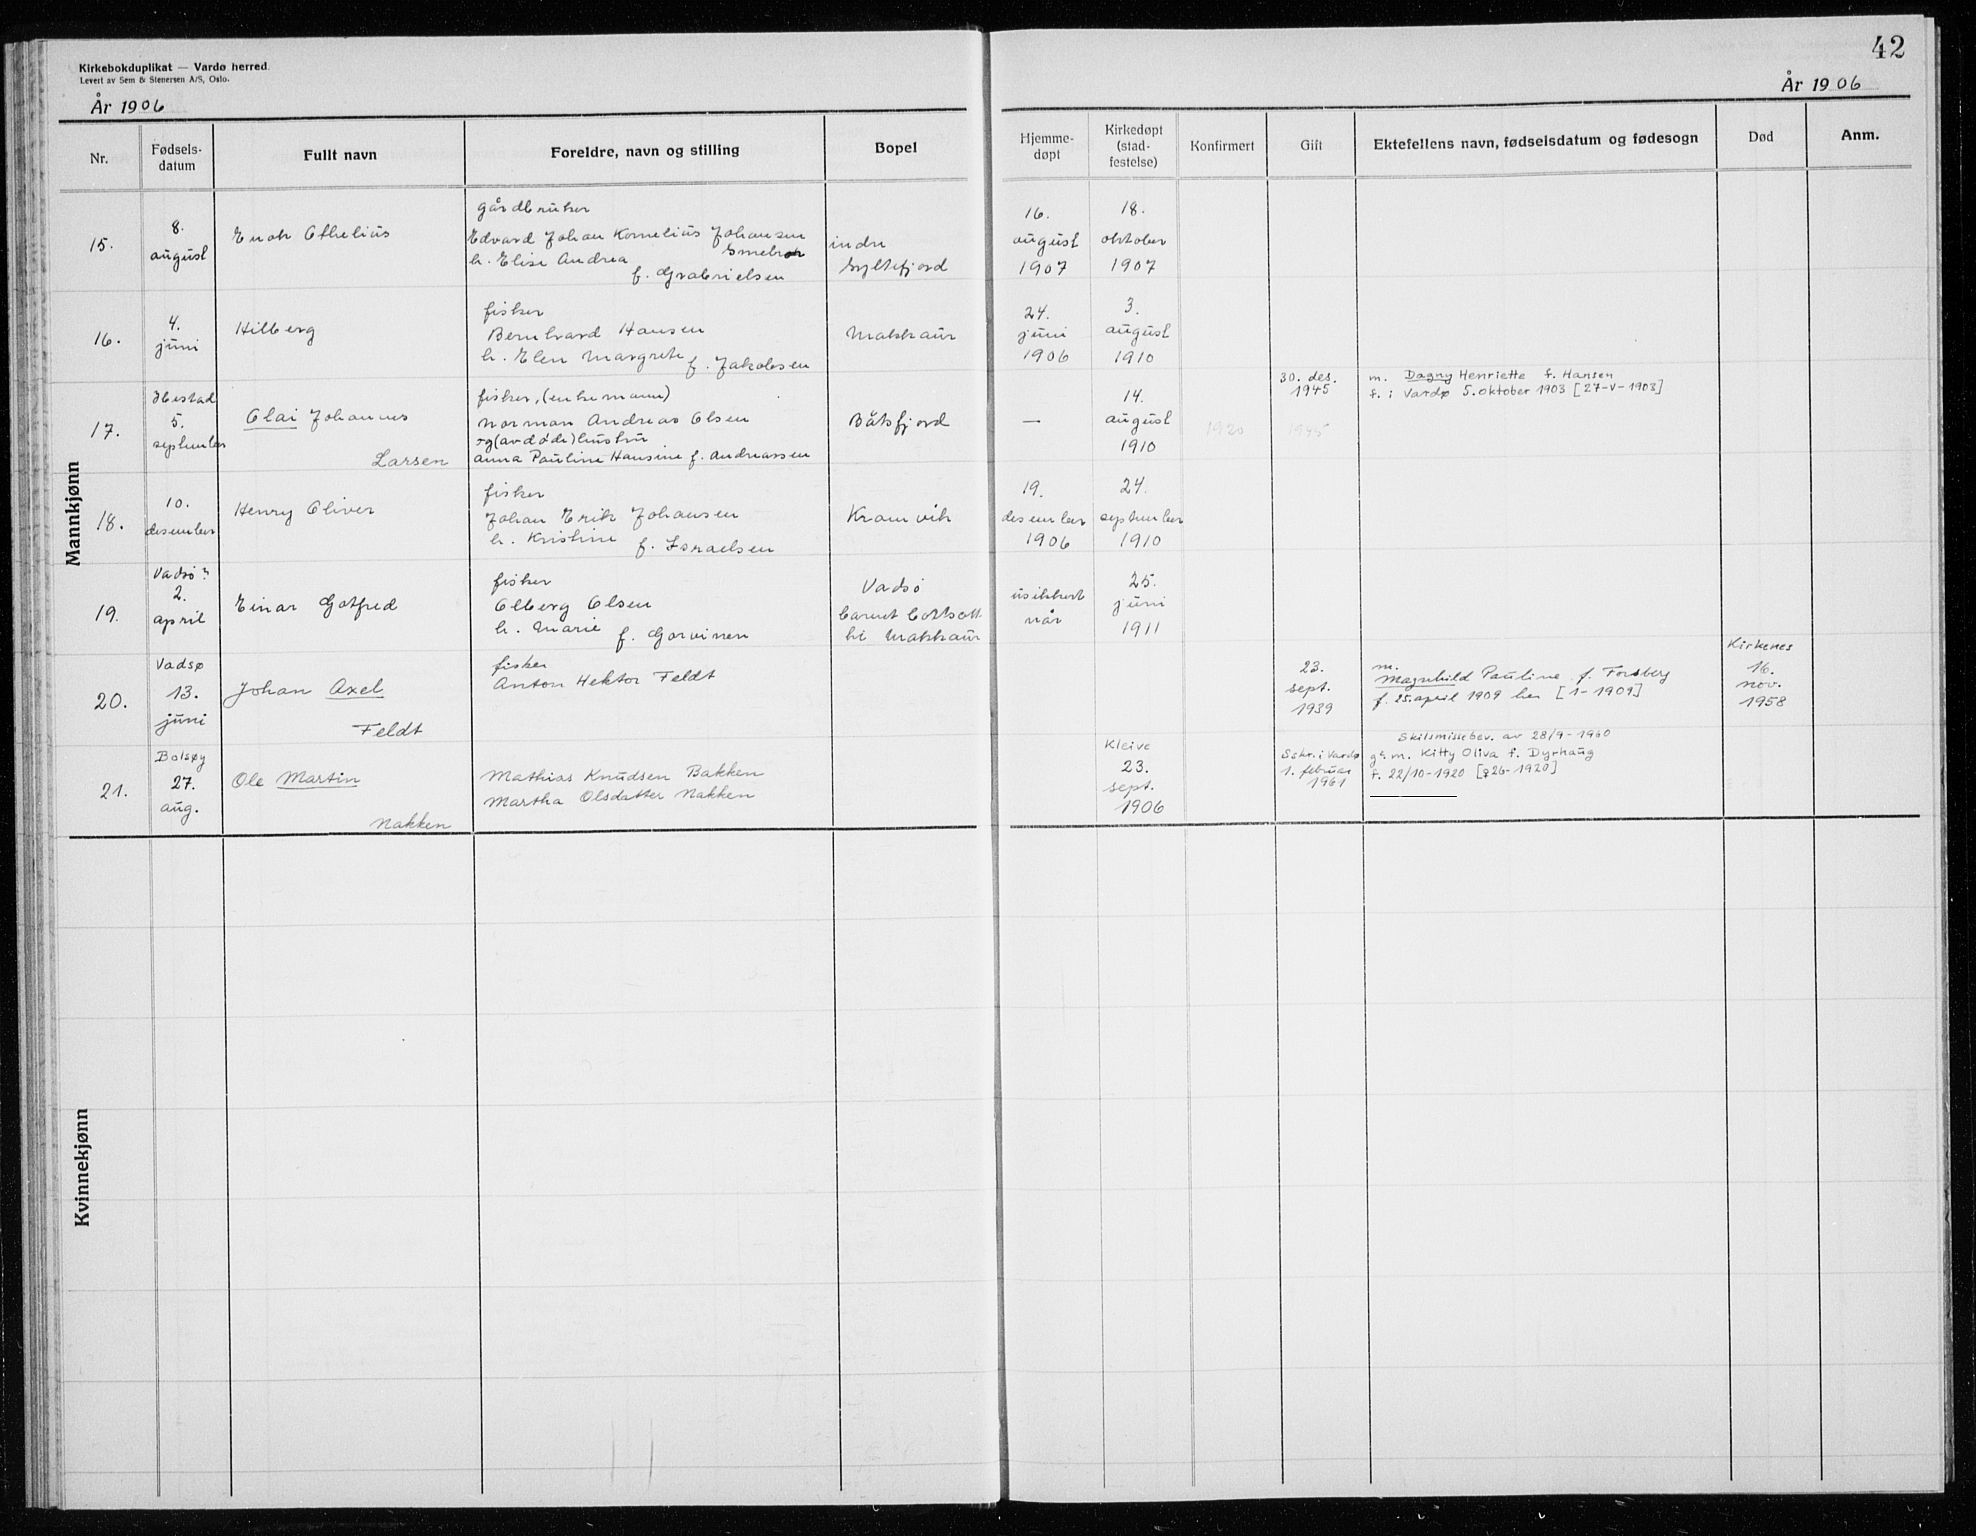 42
Kirkebokduplikat — Vardø herred
Levert av Sem & Stenersen A/S, Oslo.
År 1906
År 1906
Nr.
Fødsels-
datum
Fullt navn
Foreldre, navn og stilling
Bopel
Hjemme-
døpt
Kirkedøpt
(stad-
festelse)
Konfirmert
Gift
Ektefellens navn, fødselsdatum og fødesogn
Død
Anm.
Mannkjønn
15.
8.
august
Enok Othelius
gårdbruker
Edvard Johan Kornelius Johansen
h. Elise Andrea
f. Grabrielsen
indre
Syltefjord
16.
august
1907
18.
oktober
1907
16.
4.
juni
Hilberg
fisker
Bernhard Hansen
h. Elen Margrete f. Jakobsen
Makkaur
24.
juni
1906
3.
august
1910
17.
5.
september
Olai Johannes
Larsen
fisker, (enkemann)
Norman Andreas Olsen
og (avdøde) hustru
Anna Pauline Hansine f. Andreassen
Båtsfjord
—
14.
august
1910
1920
1945
30. des.
1945
m. Dagny Henriette f. Hansen
f. i Vardø 5. oktober 1903 [27-V-1903]
18.
10.
desember
Henry Oliver
fisker
Johan Erik Johansen
h. Kristine f. Israelsen
Kramvik
19.
desember
1906
24.
september
1910
19.
Vadsø?
2.
april
Einar Gotfred
fisker
Olberg Olsen
h. Marie f. Gorvinen
Vadsø
barnet bortsatt
til Makkaur
usikkert
når
25.
juni
1911
20.
Vadsø
13.
juni
Johan Axel
Feldt
fisker
Anton Hektor Feldt
23.
sept.
1939
m.
Magnhild Pauline f. Forsberg
f. 25. april 1909 her [1-1909]
Kirkenes
16.
nov.
1958
21.
Bolsøy
27.
aug.
Ole Martin
Nakken
Mathias Knudsen Bakken
Martha Olsdatter Nakken
Kleive
23.
sept.
1906
Sskr. i Vardø
1. februar
1961
Skilsmissebev. av 28/9-1960
g. m. Kitty Oliva f. Dyrhaug
f. 22/10-1920
Kvinnekjønn